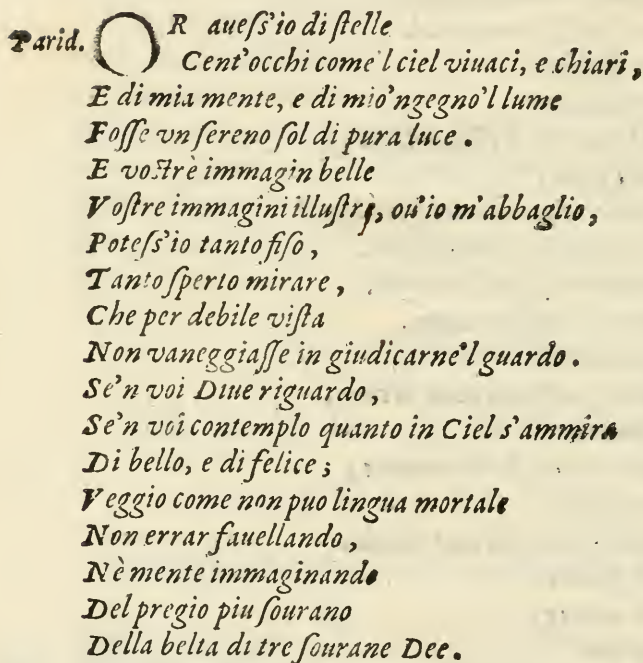 Parid. OR aueſs'io di ſtelle
Cent'occhi come'l ciel viuaci, e chiari,
E di mia mente, e di mio'ngegno'l lume
Foſſe vn ſereno ſol di pura luce.
E voſtrè immagin belle
Voſtre immagini illuſtri, ou'io m'abbaglio,
Poteſs'io tanto fiſo,
Tanto ſperto mirare,
Che per debile viſta
Non vaneggiaſſe in giudicarne'l guardo.
Se'n voi Diue riguardo,
Se'n voi contemplo quanto in Ciel s'ammira
Di bello, e di felice;
Veggio come non puo lingua mortale
Non errar fauellando,
Nè mente immaginando
Del pregio piu ſourano
Della belta di tre ſourane Dee.